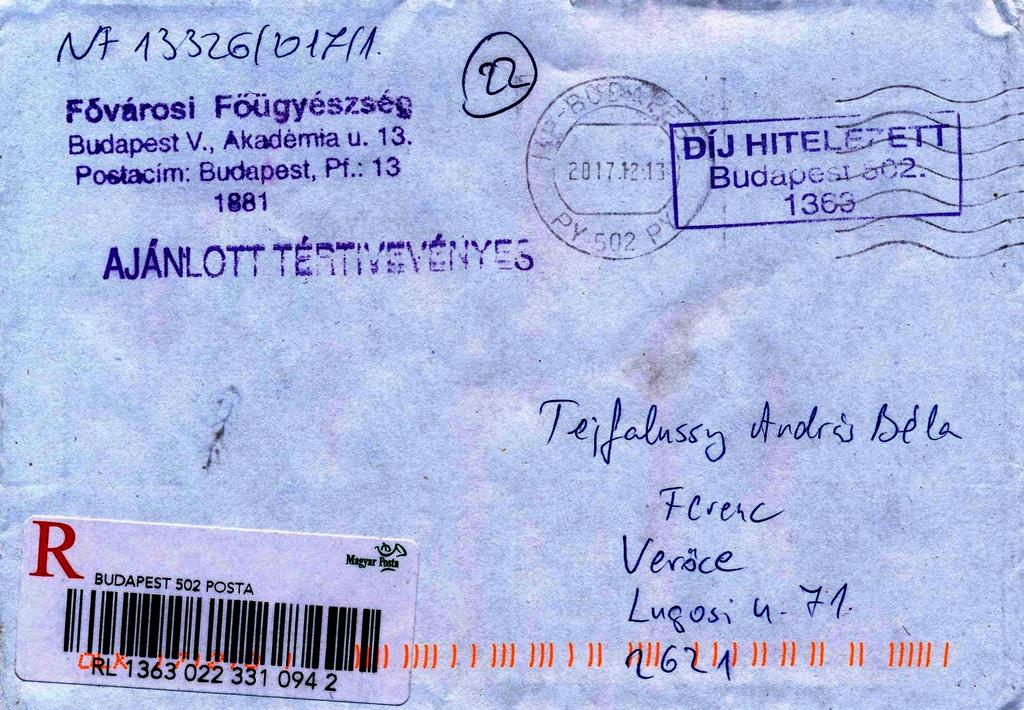 NF 13326/2017/1.
22
Fővárosi Főügyészség
Budapest V., Akadémia u. 13.
Postacím: Budapest, Pf.: 13
1881
AJÁNLOTT TÉRTIVEVÉNYES
BUDAPEST
2017.12.13
PY 502 PY
DÍJ HITELEZETT
Budapest 502.
1363
Tejfalussy András Béla
Ferenc
Verőce
Lugosi u. 71.
2621
R
Magyar Posta
BUDAPEST 502 POSTA
RL 1363 022 331 094 2